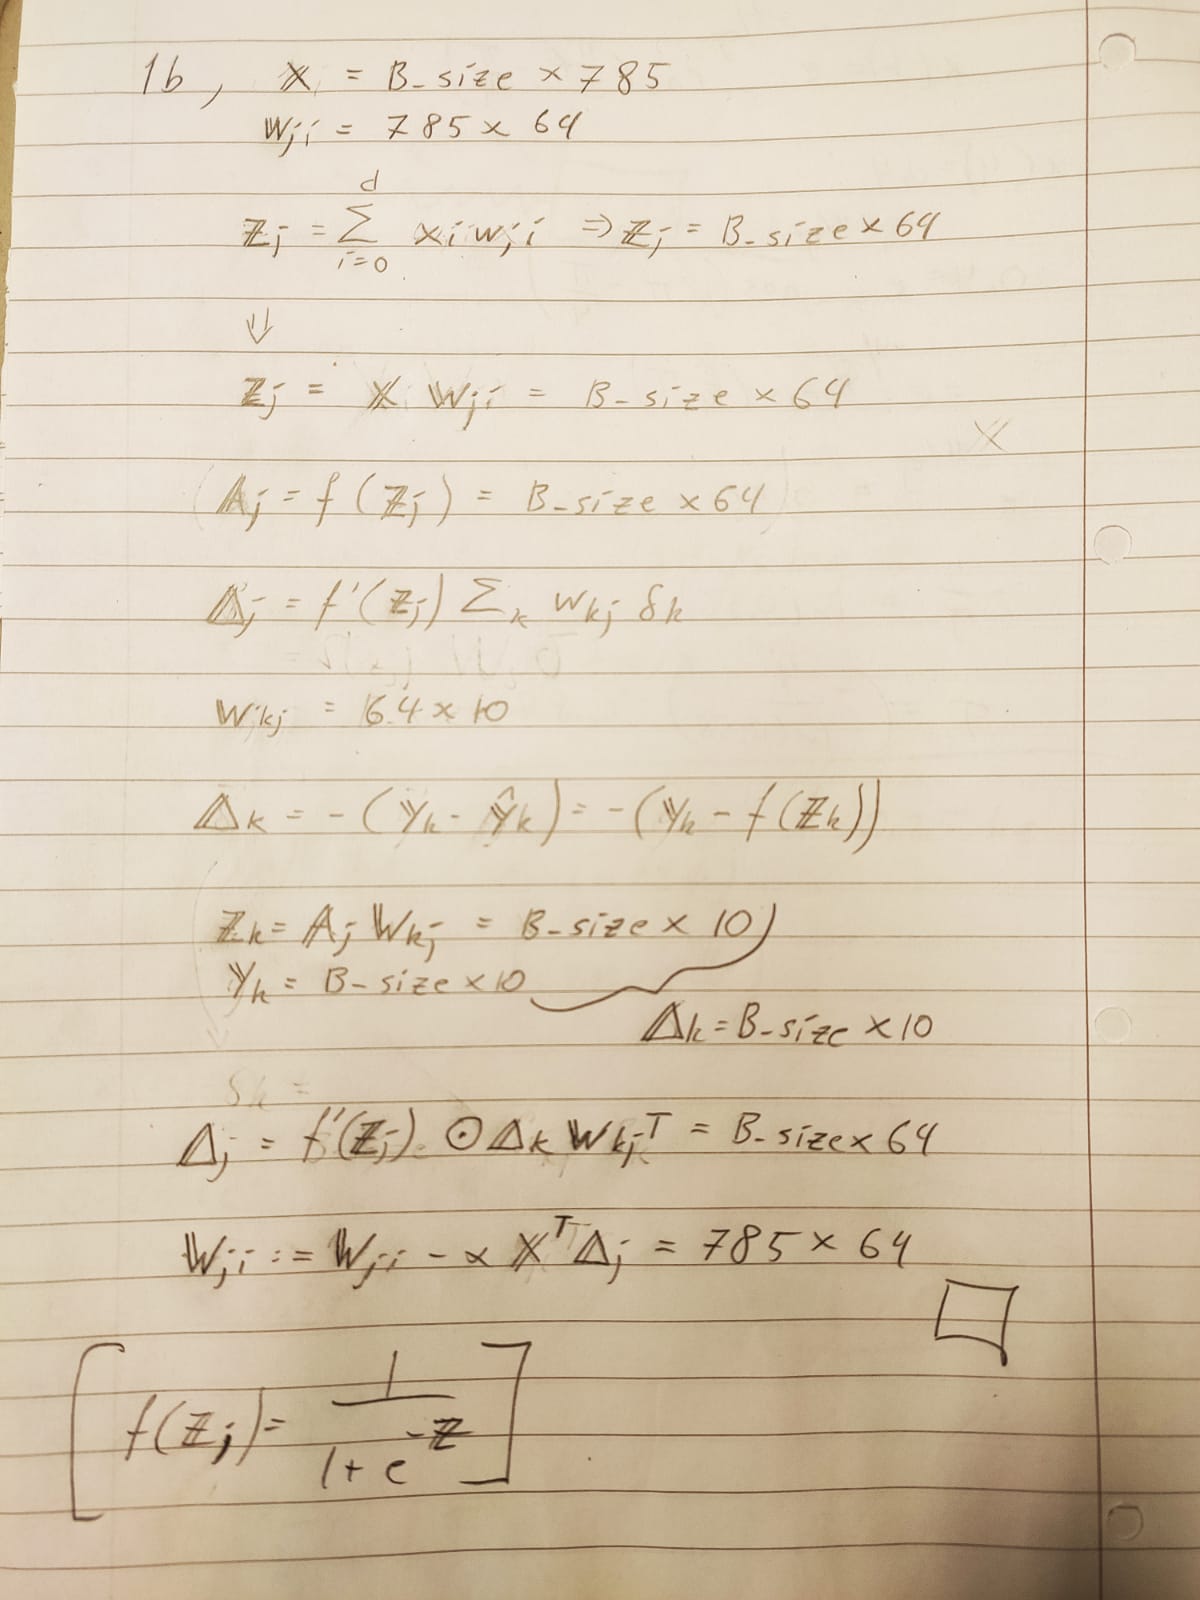 1b, X = B_size × 785
Wji = 785 × 64
d
Zj = Σ xi wji ⇒ Zj = B_size × 64
i=0
⇓
Zj = X Wji = B_size × 64
X
(Aj = f(Zj) = B_size × 64)
Δj = f'(Zj) Σk wkj δk
Wkj = 64 × 10
Δk = -(Yk - Ŷk) = -(Yk - f(Zk))
Zk = Aj Wkj = B_size × 10
Yk = B_size × 10
Δk = B_size × 10
δk =
Δj = f'(Zj) ⊙ Δk Wkj^T = B_size × 64
Wji := Wji - α X^T Δj = 785 × 64
□
[f(Zj) = 1 / (1 + e^-Z)]